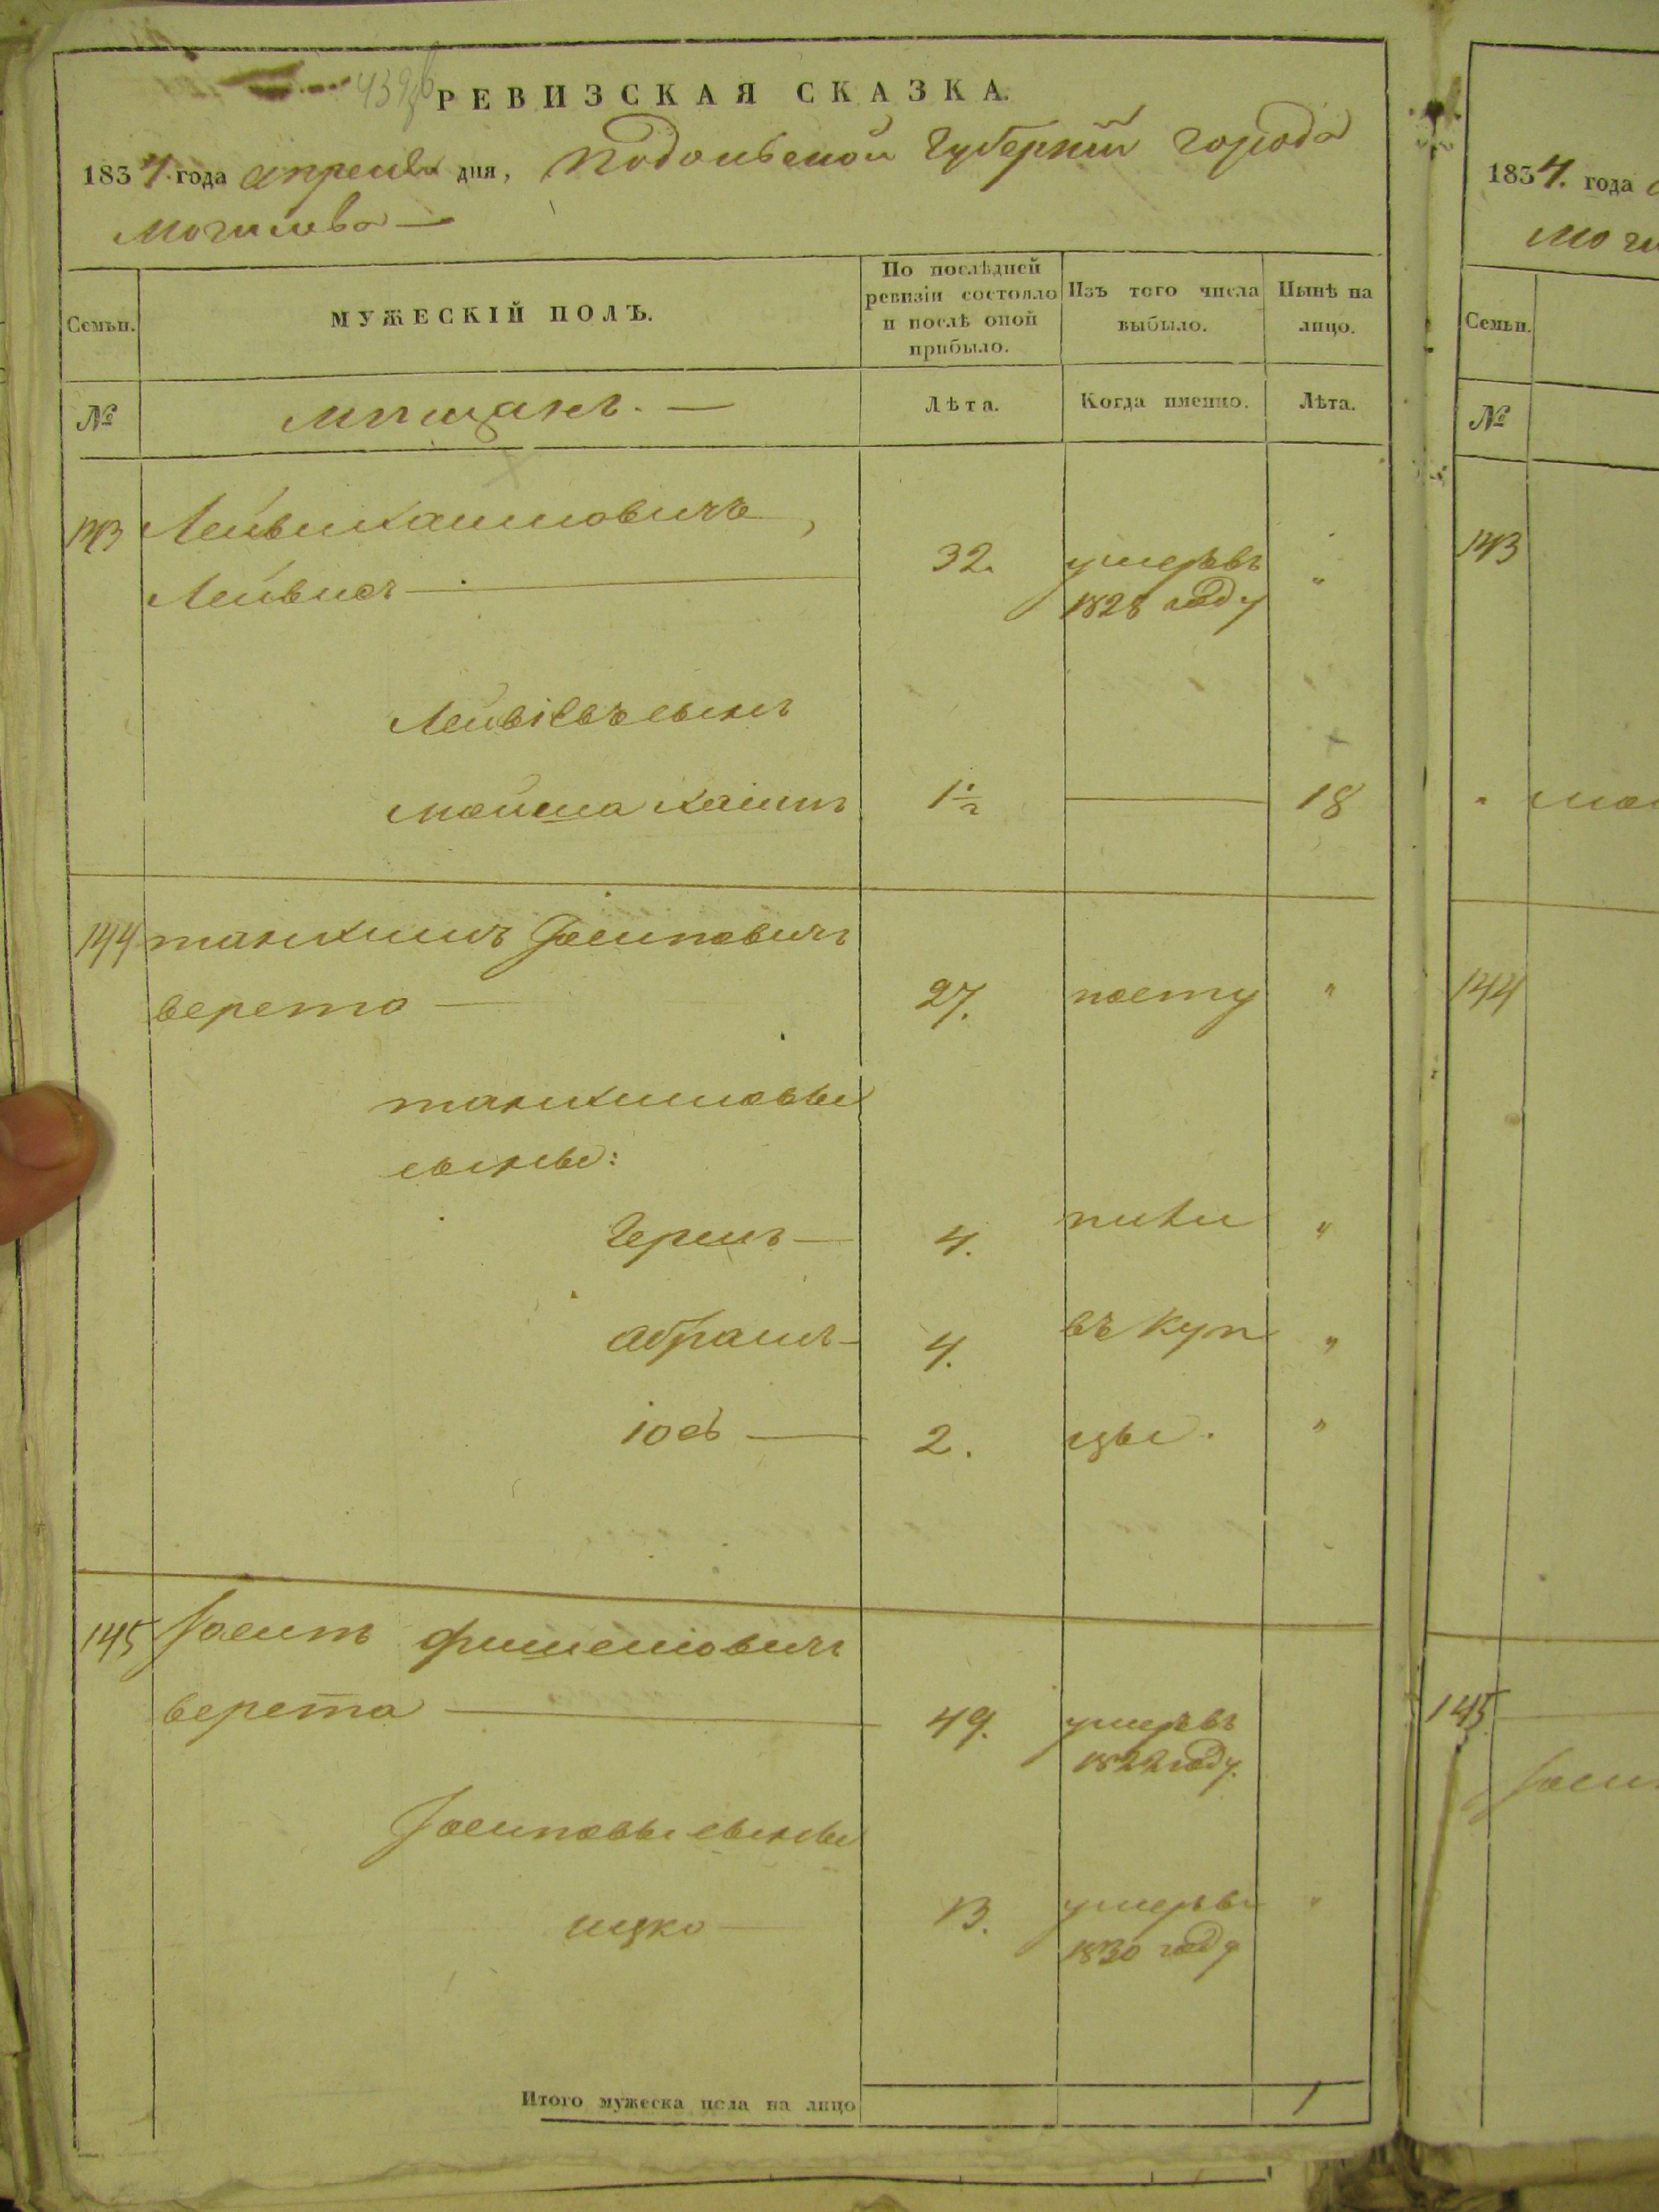 РЕВИЗСКАЯ СКАЗКА.
1834. года апреля дня, Подольской Губернии города
Могилева —
Семьи. МУЖЕСКІЙ ПОЛЪ. По послѣдней ревизіи состояло и послѣ оной прибыло. Изъ того числа выбыло. Нынѣ на лицо.
№ мещанъ. — Лѣта. Когда именно. Лѣта.
143 Лейвихаимовичъ,
Лейвисъ — 32. умеръ въ "
1828 году
Лейвісвъ сынъ
Мойша Хаимъ 1½ — 18
144 Танхимъ Іосиповичъ
Верета — 27. посту "
Танхимовы
сыны:
Герш — 4. пили "
Абрамъ — 4. въ куп "
Іось — 2. цы. "
145 Іосипъ Фишеліовичъ
Верета — 49. умеръ въ
1822 году.
Іосиповы сыны
Ицко — 13. умеръ въ "
1830 году
Итого мужеска пола на лицо 1
1834. года
143
144
145